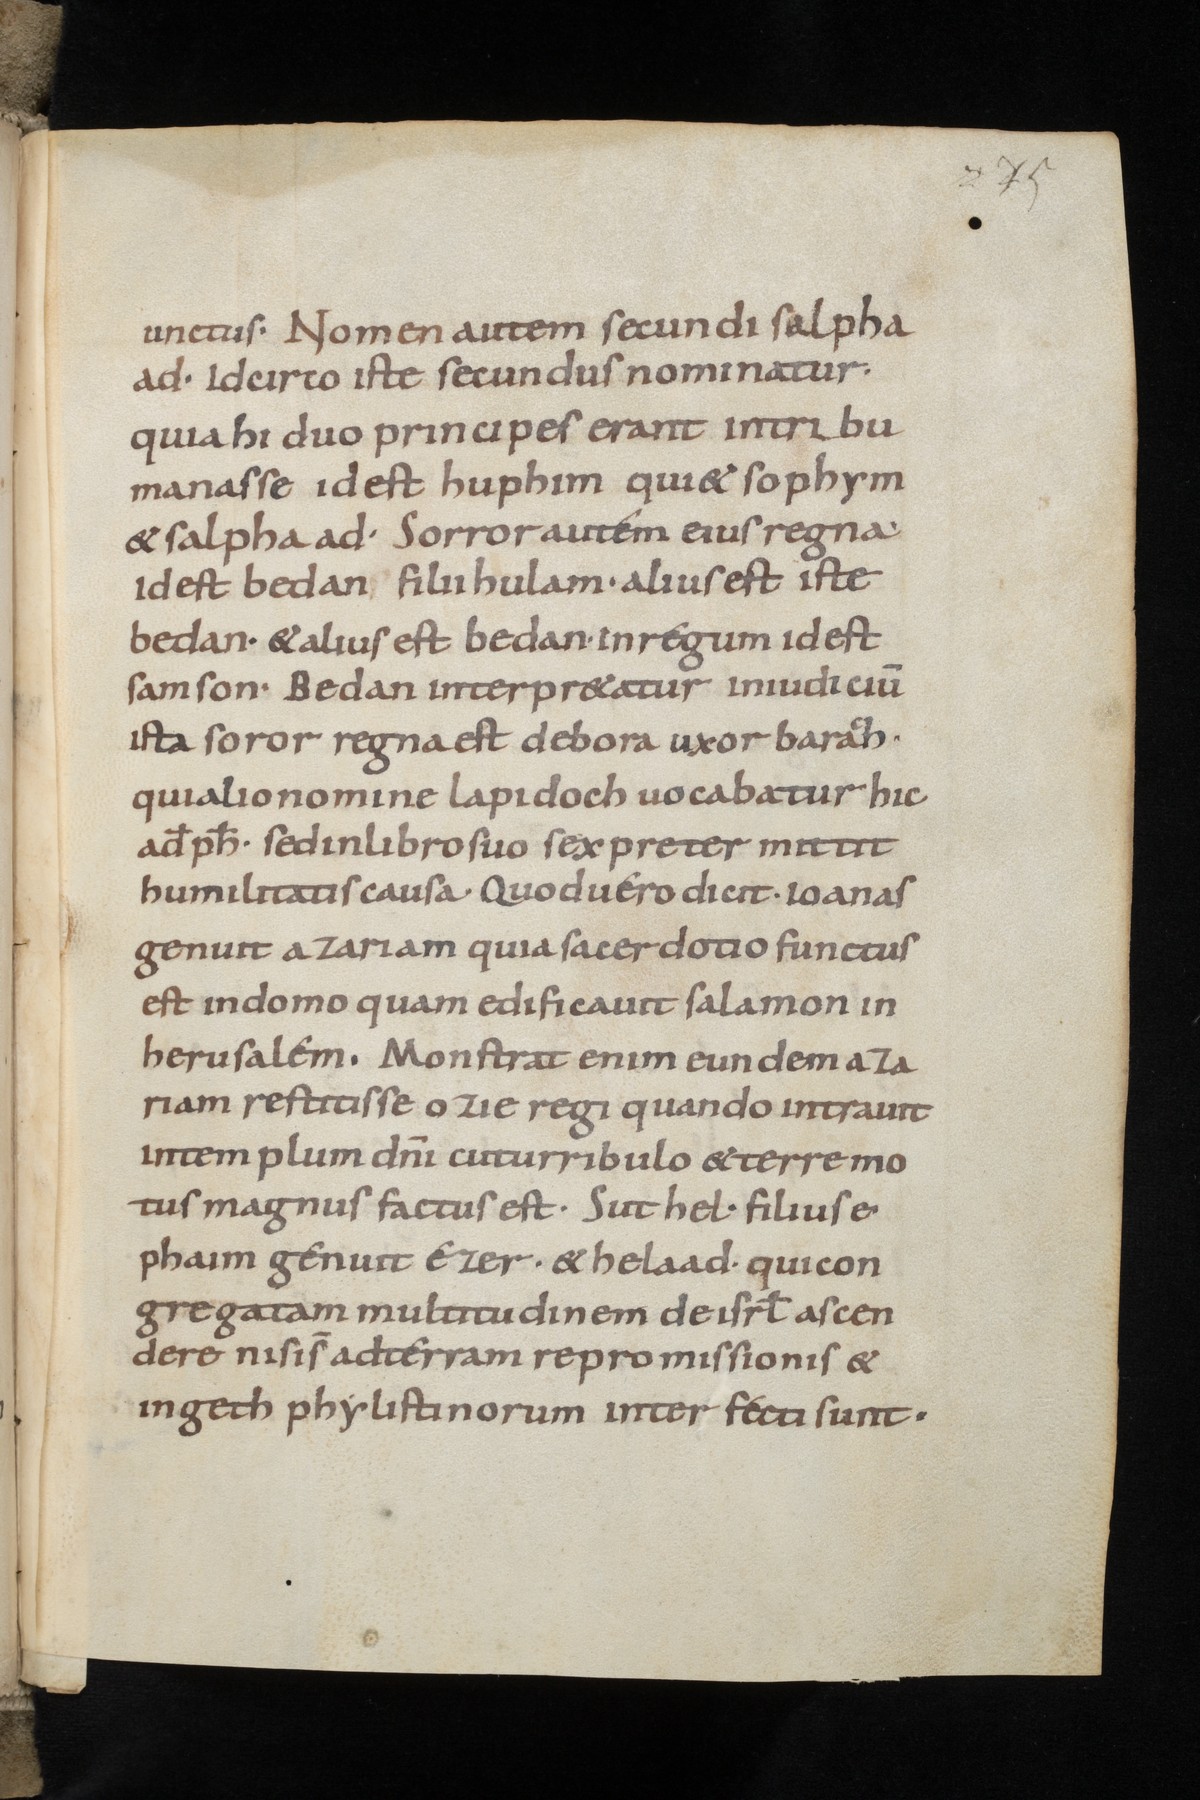 275
unctus· Nomen autem secundi salpha
ad· Idcirco iste secundus nominatur·
quia hi duo principes erant in tribu
manasse id est huphim qui & sophym
& salpha ad· Sorror autém eius regna·
id est bedan filii hulam· alius est iste
bedan· & alius est bedan· in régum id est
samson· Bedan interpr&atur in iudiciū
ista soror regna est debora uxor barach·
qui alio nomine lapidoch uocabatur hic
ad̄ph̄· sed in libro suo se x preter mittit
humilitatis causa· Quod uéro dicit· Ioanas
genuit azariam quia sacerdotio functus
est in domo quam edificauit salamon in
herusalém. Monstrat enim eundem aza
riam restitisse ozie regi quando intrauit
in templum dn̄i cu turribulo & terre mo
tus magnus factus est· Sut hel· filius e·
phaim génuit ézer· & helaad· qui con
gregatam multitudinem de isrl̄ ascen
dere nisi s̄ ad térram repromissionis &
in geth phylistinorum inter fécti sunt·